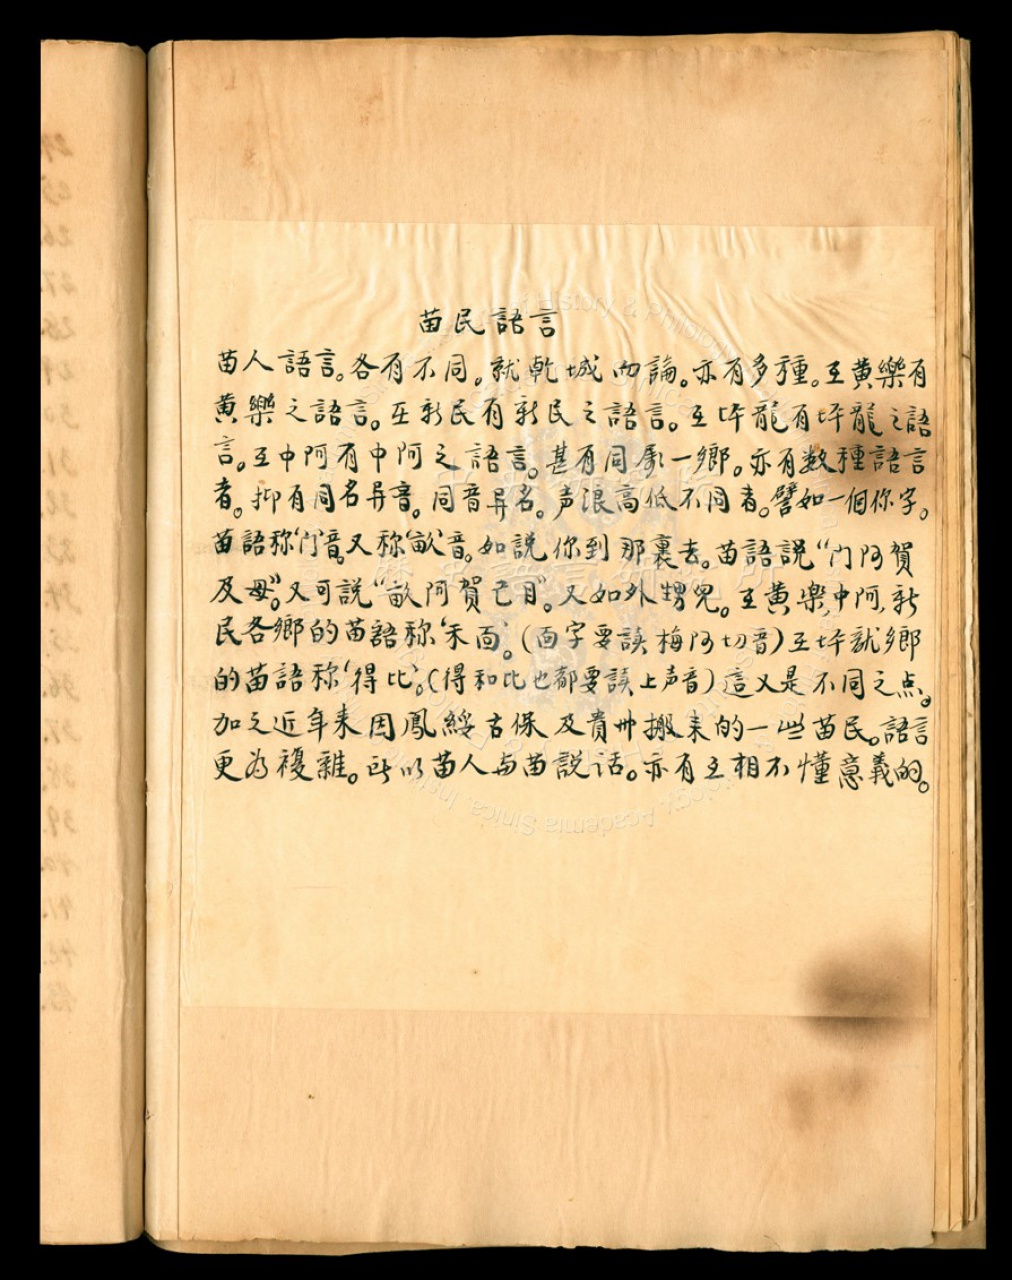 苗民語言
苗人語言。各有不同。就乾城而論。亦有多種。在黄樂有
黄樂之語言。在新民有新民之語言。在坪龍有坪龍之語
言。在中阿有中阿之語言。甚有同屬一鄉。亦有数種語言
者。抑有同名异音。同音异名。声浪高低不同者。譬如一個你字。
苗語称“门”音。又称“畝”音。如説你到那裏去。苗語説“门阿賀
及母”。又可説“畝阿賀己目”。又如外甥兒。在黄樂,中阿,新
民各鄉的苗語称‘禾面’。(面字要讀梅阿切音)在坪就鄉
的苗語称‘得比’。(得和比也都要讀上声音)這又是不同之点。
加之近年来因鳳綏古保及貴州搬来的一些苗民。語言
更为複雜。所以苗人与苗説话。亦有互相不懂意義的。